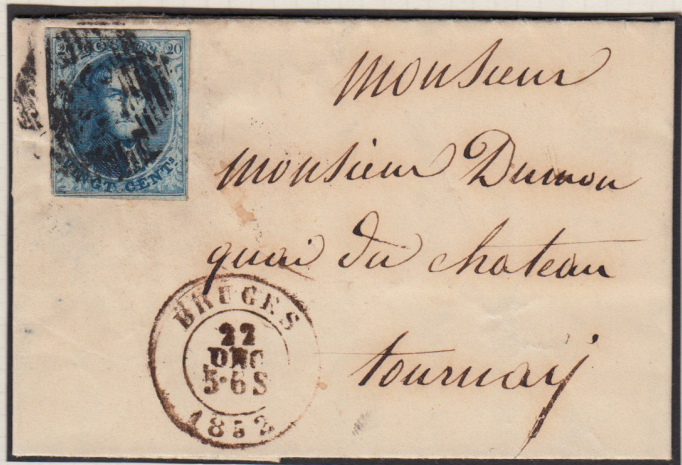 20 POSTES 20
VINGT CENTS
Monsieur
Monsieur Dumon
quai du chateau
tournay
BRUGES
22
DEC
5·6S
1852